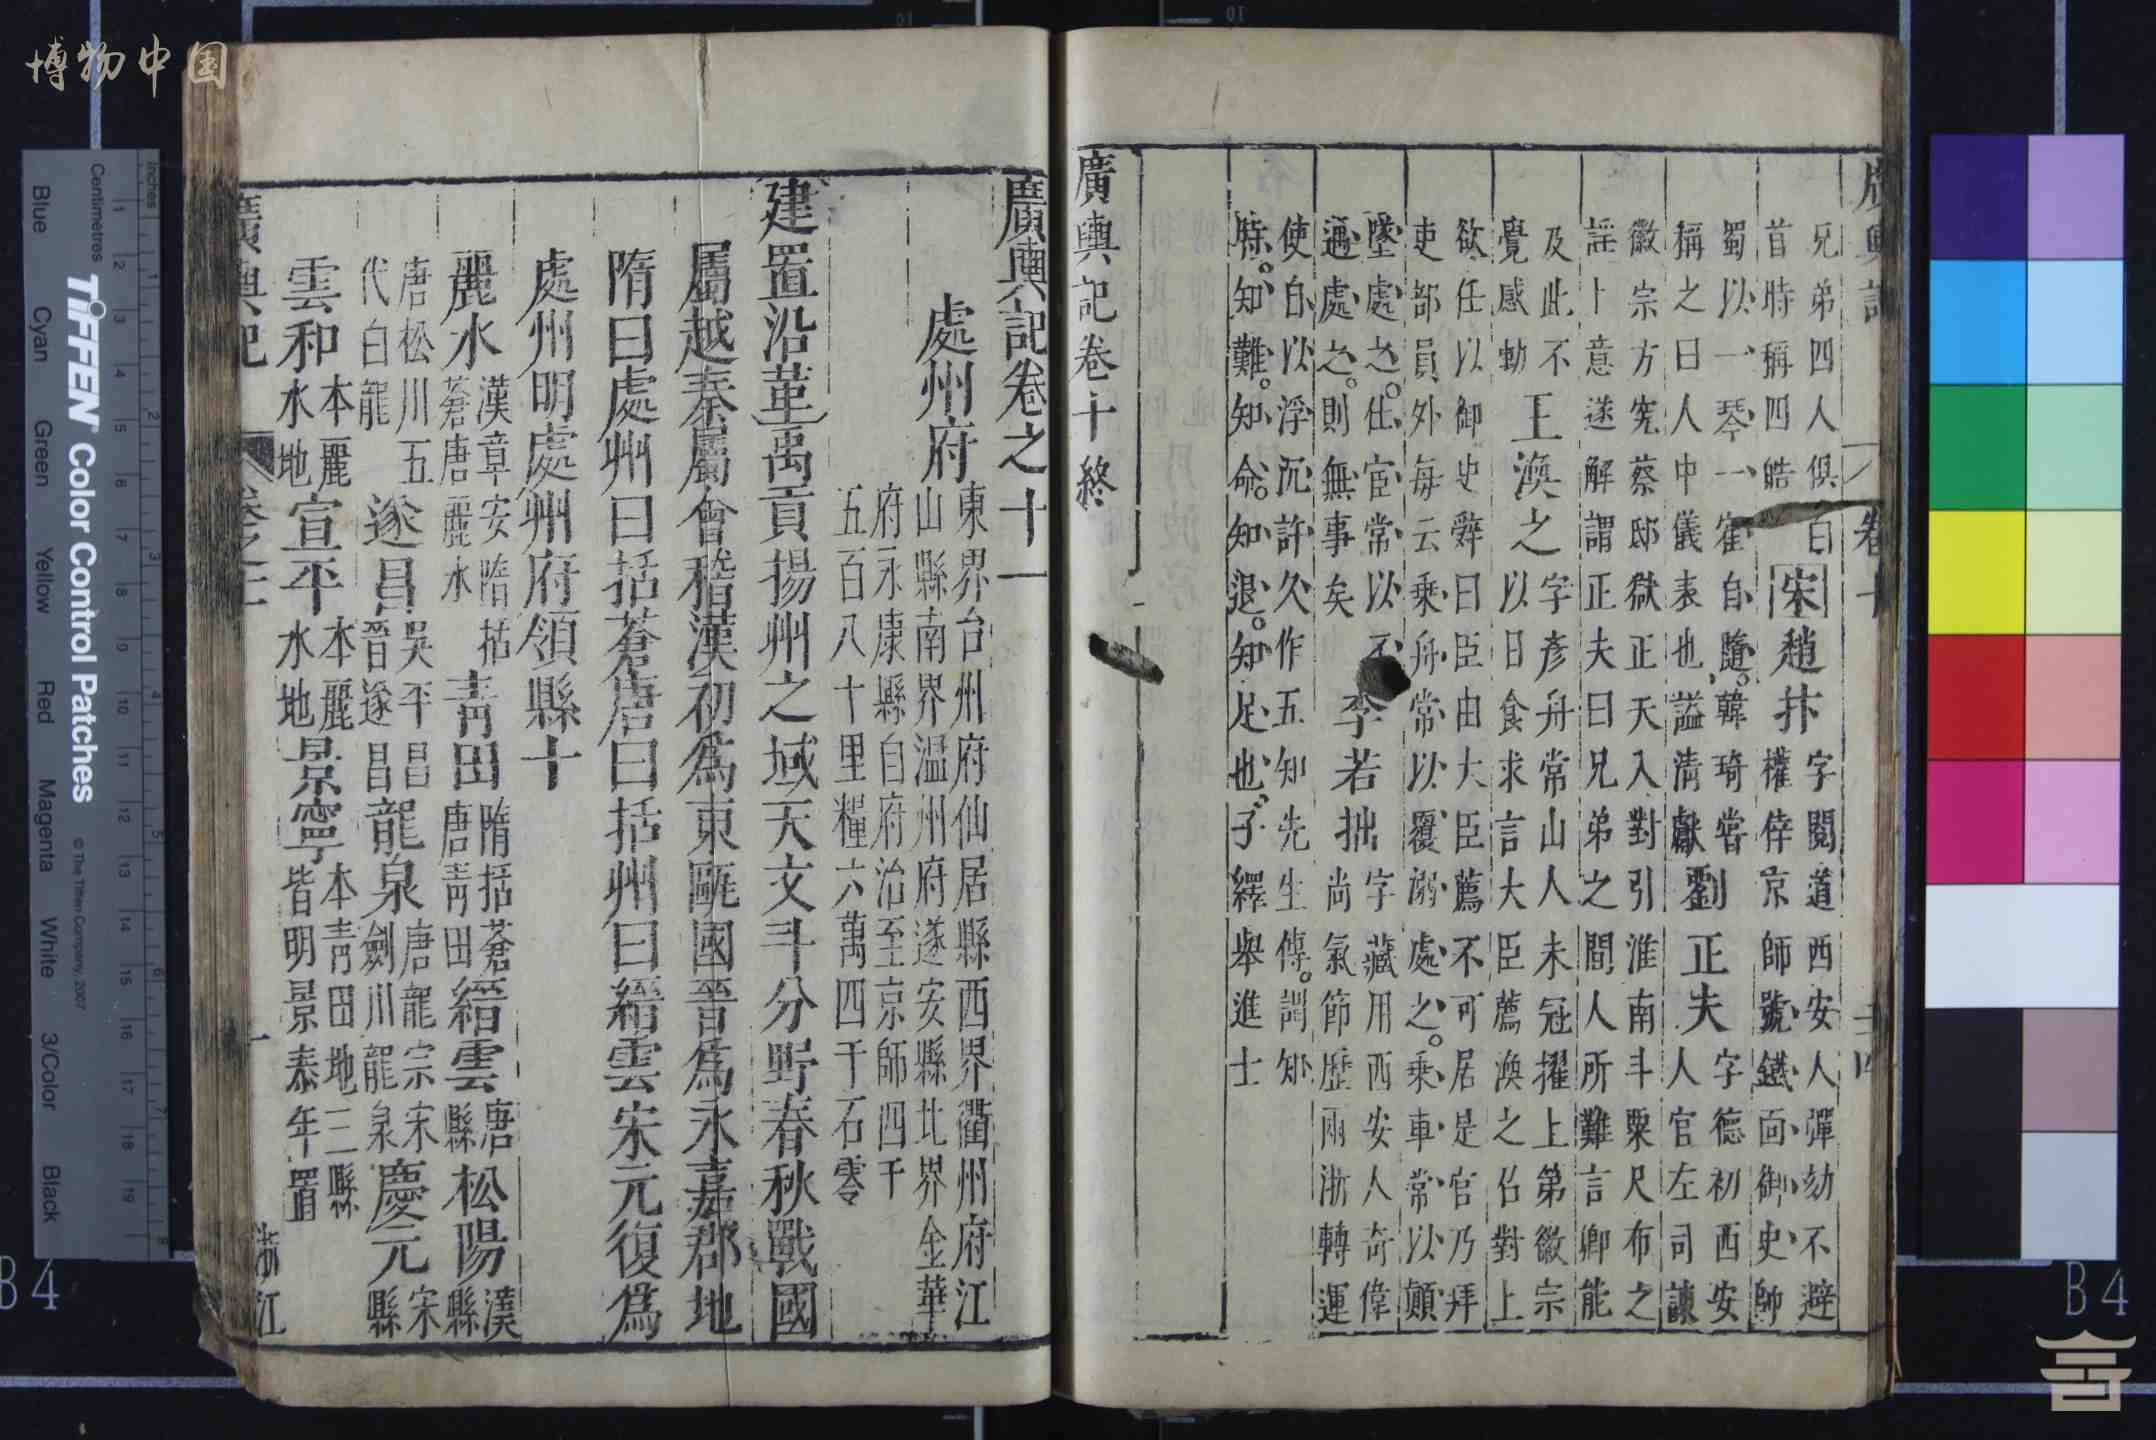 博物中国
兄弟四人俱白
首時稱四皓
宋
趙抃
字閱道西安人彈劾不避
權倖京師號鐵面御史帥
蜀以一琴一隺自隨韓琦嘗
稱之曰人中儀表也謚清獻
劉正夫
字德初西安
人官左司諫
徽宗方究蔡邸獄正夫入對引淮南斗粟尺布之
謡上意遂解謂正夫曰兄弟之間人所難言卿能
及此不
覺感動
王渙之
字彥舟常山人未冠擢上第徽宗
以日食求言大臣薦渙之召對上
欲任以御史辤曰臣由大臣薦不可居是官乃拜
吏部員外每云乘舟常以覆溺處之乘車常以顛
墜處之仕宦常以不
遇處之則無事矣
李若拙
字藏用西安人奇偉
尚氣節歷兩浙轉運
使自以浮沉許久作五知先生傳謂知
時知難知命知退知足也子繹舉進士
廣輿記卷十終
廣輿記卷之十一
處州府
東界台州府仙居縣西界衢州府江
山縣南界温州府遂安縣北界金華
府永康縣自府治至京師四千
五百八十里糧六萬四千石零
建置沿革禹貢揚州之域天文斗分野春秋戰國
屬越秦屬會稽漢初為東甌國晉為永嘉郡地
隋曰處州曰括蒼唐曰括州曰縉雲宋元復為
處州明處州府領縣十
麗水
漢章安隋括
蒼唐麗水
青田
隋括蒼
唐青田
縉雲
唐
縣
松陽
漢
縣
唐松川五
代白龍
遂昌
吳平昌
晉遂昌
龍泉
唐龍宗宋
劍川龍泉
慶元
宋
縣
雲和
本麗
水地
宣平
本麗
水地
景寧
本青田地三縣
皆明景泰年置
廣輿記
卷之十一
一
浙江